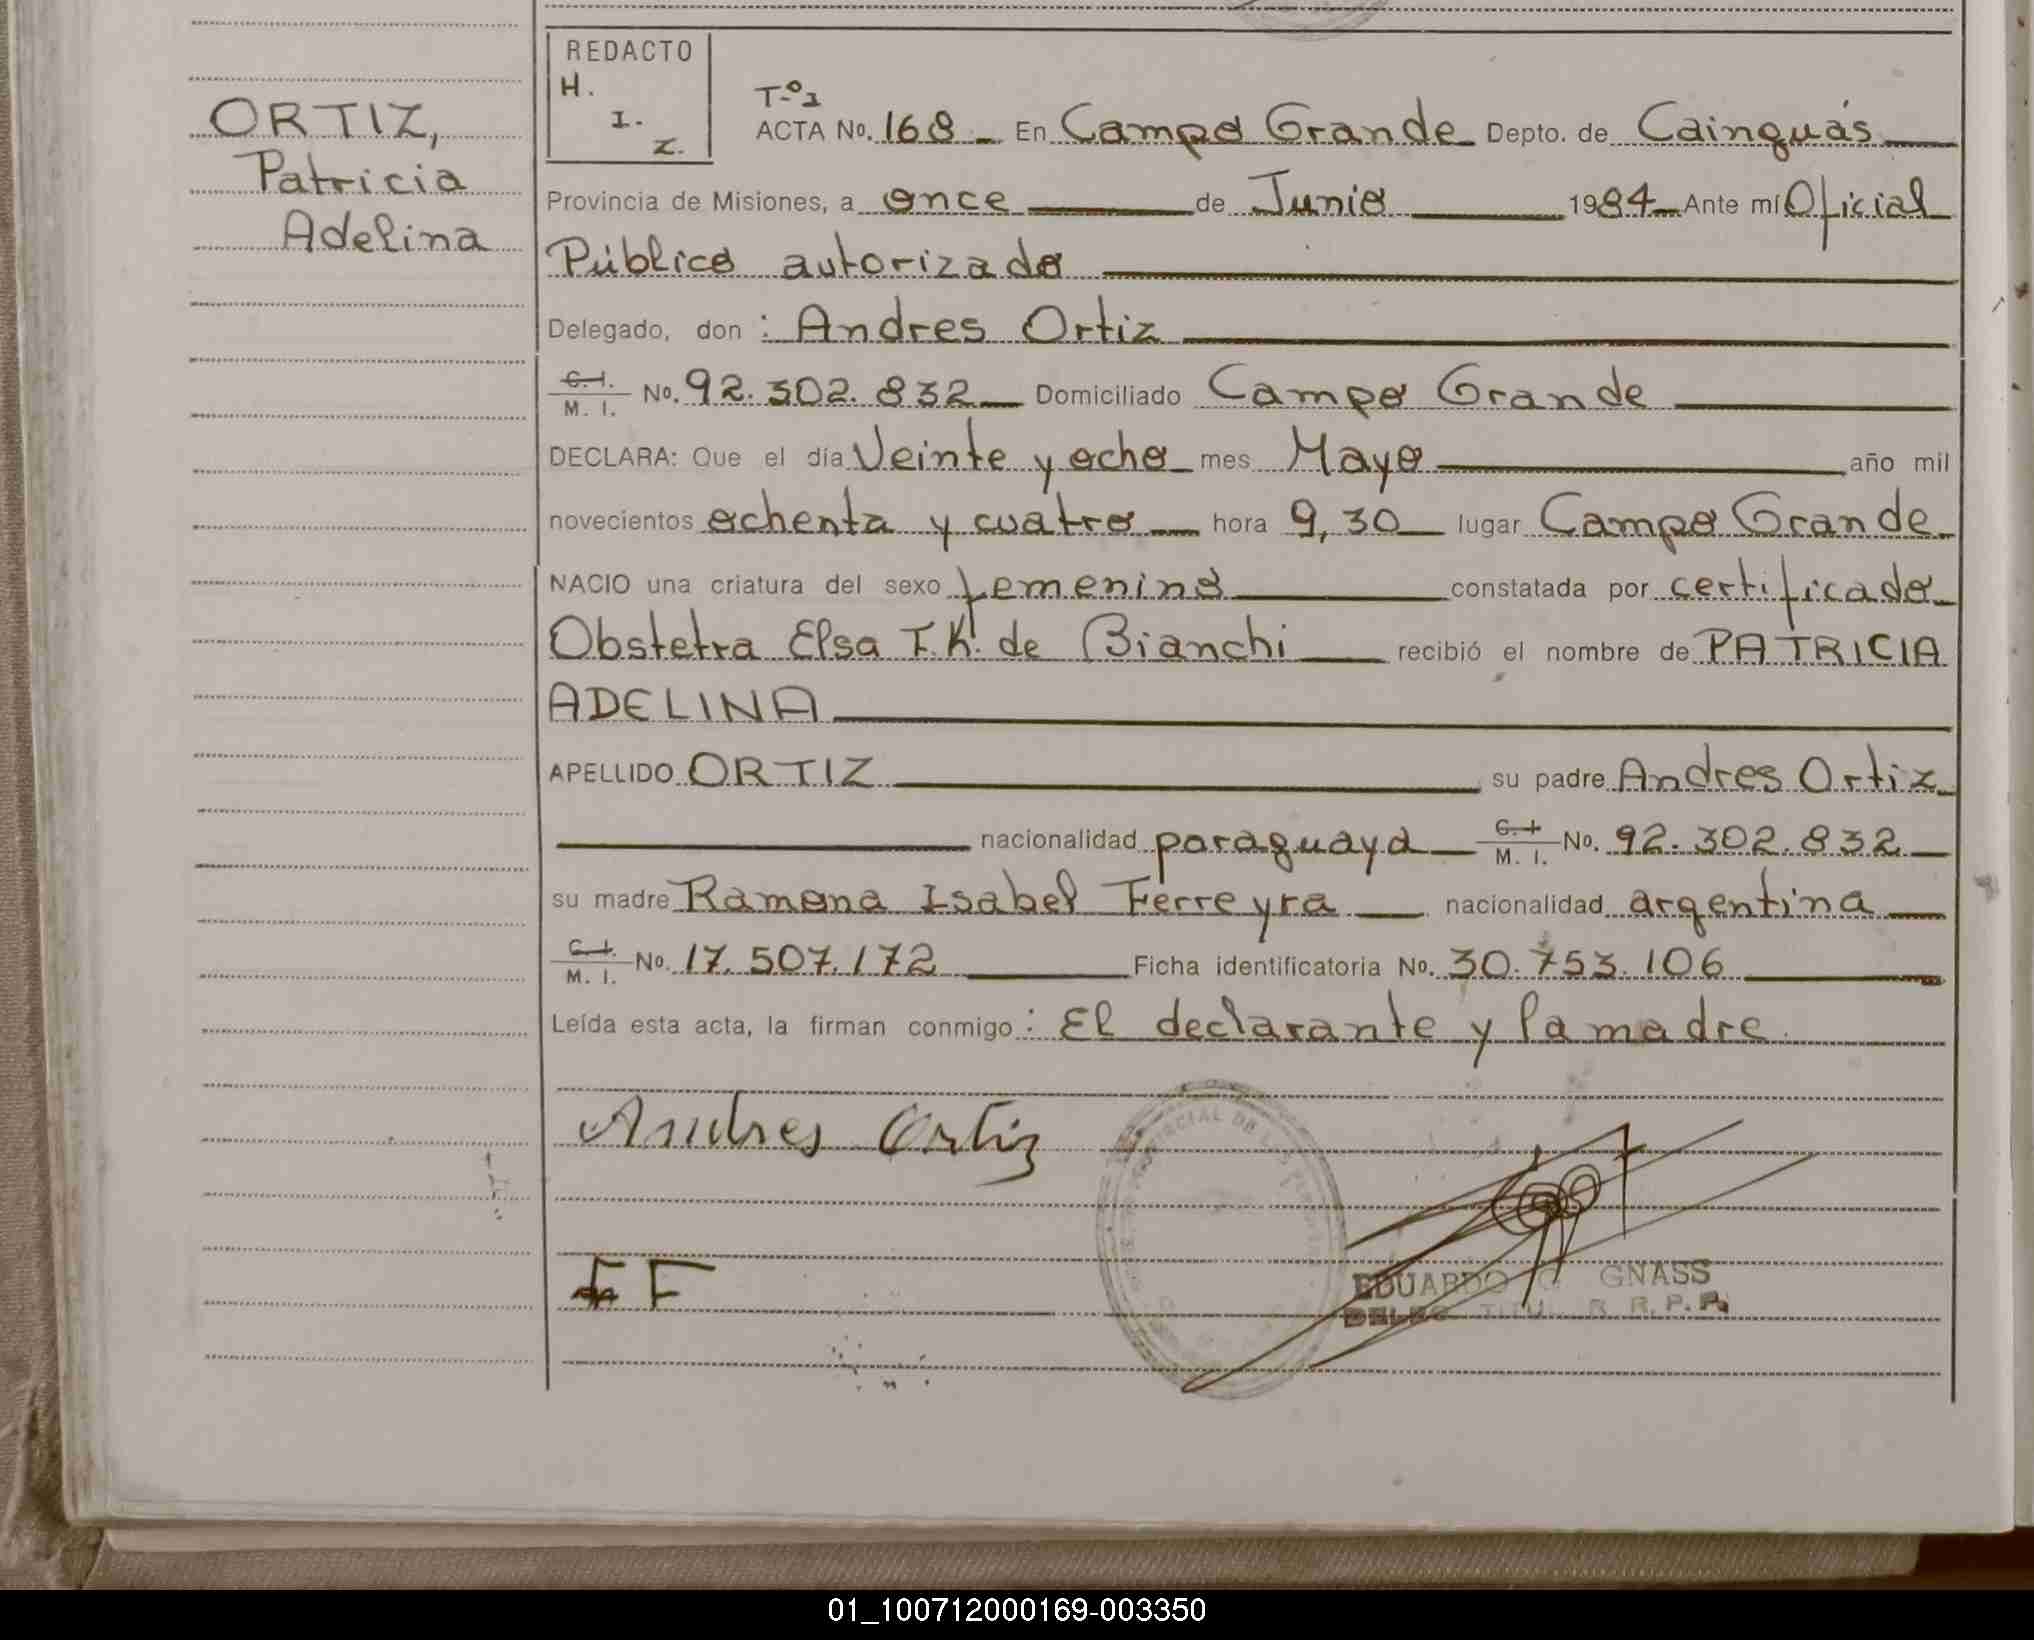 ORTIZ,
Patricia
Adelina
REDACTO
H.
I.
Z.
T-º1
ACTA No. 168 En Campo Grande Depto. de Cainguás
Provincia de Misiones, a once de Junio 1984 Ante mí Oficial
Público autorizado
Delegado, don : Andres Ortiz
C. I. M. I. No. 92.302.832 Domiciliado Campo Grande
DECLARA: Que el día Veinte y ocho mes Mayo año mil
novecientos ochenta y cuatro hora 9,30 lugar Campo Grande
NACIO una criatura del sexo femenino constatada por certificado
Obstetra Elsa T.K. de Bianchi recibió el nombre de PATRICIA
ADELINA
APELLIDO ORTIZ su padre Andres Ortiz
nacionalidad paraguaya C. I. M. I. No. 92.302.832
su madre Ramona Isabel Ferreyra nacionalidad argentina
C. I. M. I. No. 17.507.172 Ficha identificatoria No. 30.753.106
Leída esta acta, la firman conmigo : El declarante y la madre.
Andres Ortiz
F
EDUARDO GNASS
DELEG. TITU. R. R. P. P.
01_100712000169-003350